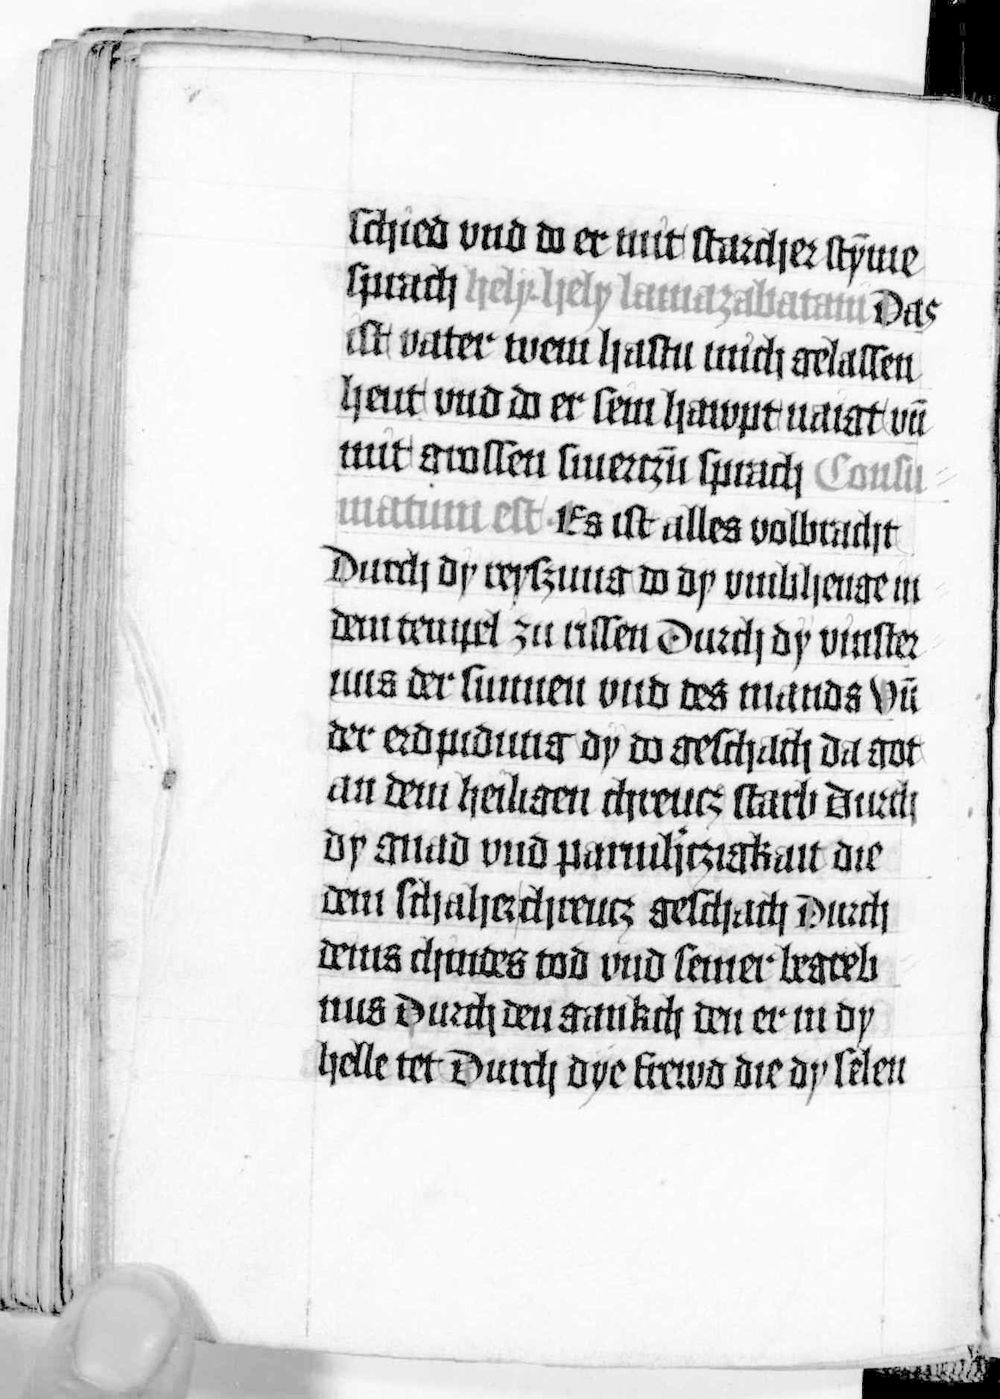 schied vnd do er mit starcher stȳme
sprach hely hely lamazabatani Das
ist vater wem hastu mich gelassen
heut vnd do er sein hawpt naigt vn̄
mit grossen smerczn̄ sprach Consu
matum est Es ist alles volbracht
Durch dy reyszung do dy vmbhenge in
dem tempel zu rissen Durch dy vinster
nus der sunnen vnd des mands Vn̄
der erdpidung dy do geschach da got
an dem heiligen chreucz starb Durch
dy gnad vnd parmhcziakait die
dem schaher chreucz geschach Durch
deins chindes tod vnd seiner begreb
nus Durch den gankch den er in dy
helle tet Durch dye frewd die dy selen